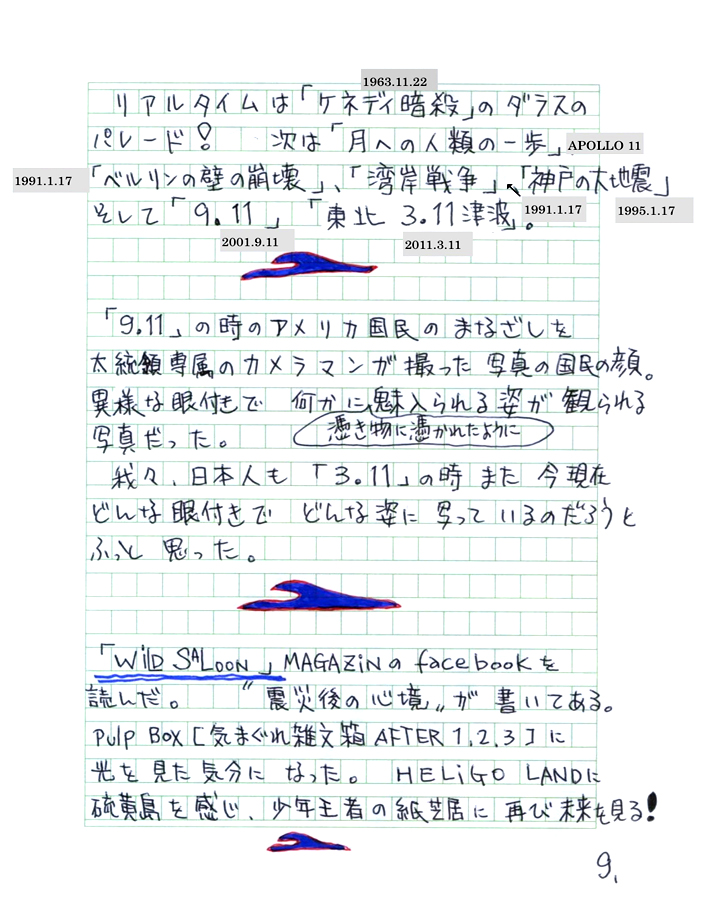 1963.11.22
リアルタイムは「ケネディ暗殺」のダラスの
パレード! 次は「月への人類の一歩」 APOLLO 11
1991.1.17 「ベルリンの壁の崩壊」、「湾岸戦争」「神戸の大地震」
そして「9.11」「東北 3.11津波」。 1991.1.17 1995.1.17
2001.9.11 2011.3.11
「9.11」の時のアメリカ国民のまなざしを
大統領専属のカメラマンが撮った写真の国民の顔。
異様な眼付きで 何かに魅入られる姿が観られる
写真だった。 憑き物に憑かれたように
我々、日本人も「3.11」の時また今現在
どんな眼付きで どんな姿に写っているのだろうと
ふっと思った。
「WiLD SALOON」MAGAZiNのfacebookを
読んだ。 〝震災後の心境〟が書いてある。
PULP BOX [気まぐれ雑文箱 AFTER 1,2,3]に
光を見た気分になった。 HELiGO LANDに
硫黄島を感じ、少年王者の紙芝居に再び未来を見る!
9.